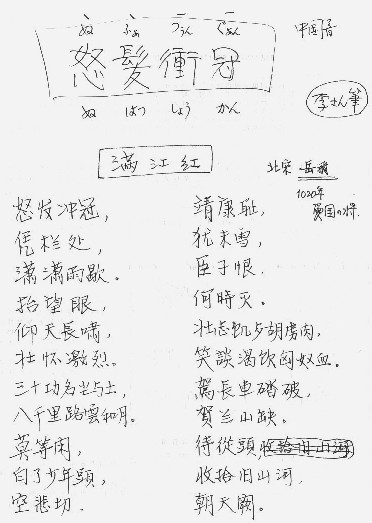 ぬ ふぁ
中国音
怒髪衝冠
ぬ はつ しょう かん
李さん筆
満江紅
北宋 岳飛
1020年
愛国の将.
怒发冲冠，
凭栏处，
瀟瀟雨歇。
抬望眼，
仰天長嘯，
壮怀激烈。
三十功名尘与土，
八千里路雲和月。
莫等闲，
白了少年頭，
空悲切.
靖康耻，
犹未雪，
臣子恨.
何時灭。
壮志饥歺胡虏肉，
笑談渴饮匈奴血。
駕長車踏破，
贺兰山缺。
待從頭收拾旧山河
收拾旧山河，
朝天闕。